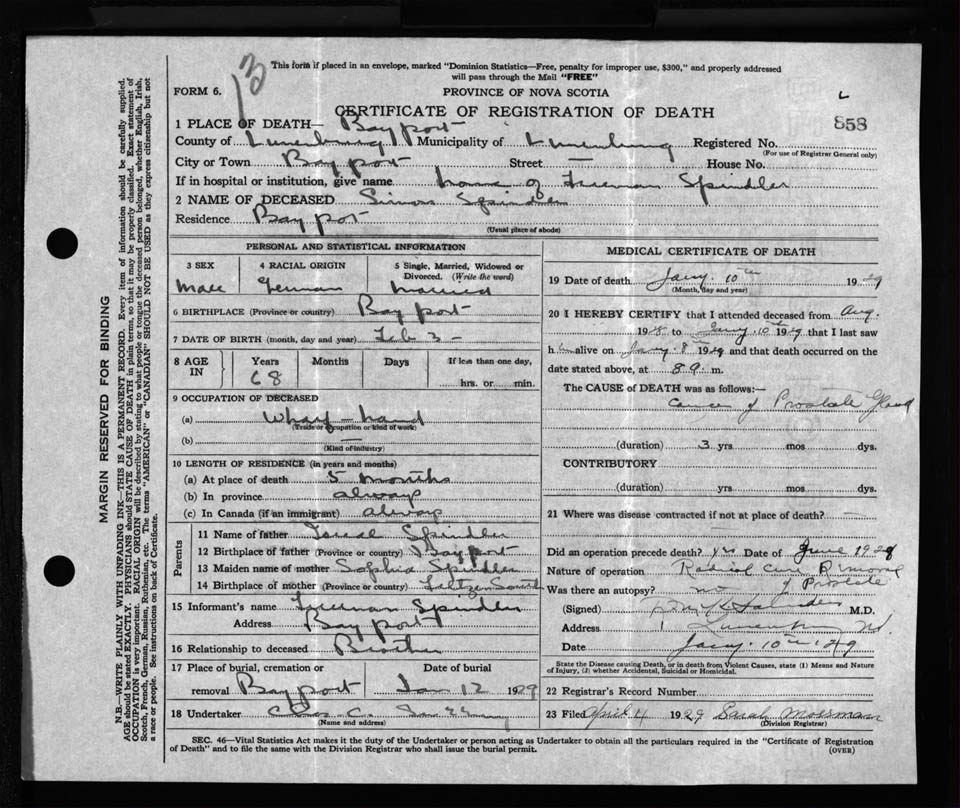 13
This form if placed in an envelope, marked "Dominion Statistics—Free, penalty for improper use, $300," and properly addressed
will pass through the Mail "FREE"
FORM 6.
PROVINCE OF NOVA SCOTIA
CERTIFICATE OF REGISTRATION OF DEATH
858
1 PLACE OF DEATH— Bayport
County of Lunenburg Municipality of Lunenburg Registered No.
(For use of Registrar General only)
City or Town Bayport Street — House No.
If in hospital or institution, give name home of Freeman Spindler
2 NAME OF DECEASED Simon Spindler
Residence Bayport
(Usual place of abode)
PERSONAL AND STATISTICAL INFORMATION
3 SEX 4 RACIAL ORIGIN 5 Single, Married, Widowed or Divorced. (Write the word)
Male German Married
6 BIRTHPLACE (Province or country) Bayport
7 DATE OF BIRTH (month, day and year) Feb 3 —
8 AGE IN Years Months Days If less than one day,
68 hrs. or min.
9 OCCUPATION OF DECEASED
(a) Wharf-hand
(Trade or occupation or kind of work)
(b) —
(Kind of industry)
10 LENGTH OF RESIDENCE (in years and months)
(a) At place of death 5 months
(b) In province always
(c) In Canada (if an immigrant) always
Parents
11 Name of father Spindler
12 Birthplace of father (Province or country) Bayport
13 Maiden name of mother Sophia Spindler
14 Birthplace of mother (Province or country) Feltzen South
15 Informant's name Freeman Spindler
Address Bayport
16 Relationship to deceased Brother
17 Place of burial, cremation or Date of burial
removal Bayport Jan 12 1929
18 Undertaker
(Name and address)
MEDICAL CERTIFICATE OF DEATH
19 Date of death Jany. 10th 1929
(Month, day and year)
20 I HEREBY CERTIFY that I attended deceased from Aug.
1928 to Jany 10th 1929 that I last saw
him alive on Jany. 8th 1929 and that death occurred on the
date stated above, at m.
The CAUSE OF DEATH was as follows:—
Cancer of Prostate Gland
(duration) 3 yrs. mos. dys.
CONTRIBUTORY
(duration) yrs. mos. dys.
21 Where was disease contracted if not at place of death?
Did an operation precede death? yes Date of June 1928
Nature of operation Radical
of Prostate
Was there an autopsy? no
(Signed) M.D.
Address Lunenburg
Date Jany 10th 29
State the Disease causing Death, or in death from Violent Causes, state (1) Means and Nature
of Injury, (2) whether Accidental, Suicidal or Homicidal.
22 Registrar's Record Number
23 Filed April 4 1929 Sarah Mossman
(Division Registrar)
SEC. 46—Vital Statistics Act makes it the duty of the Undertaker or person acting as Undertaker to obtain all the particulars required in the "Certificate of Registration
of Death" and to file the same with the Division Registrar who shall issue the burial permit.
(OVER)
MARGIN RESERVED FOR BINDING
N.B.—WRITE PLAINLY WITH UNFADING INK—THIS IS A PERMANENT RECORD. Every item of information should be carefully supplied.
AGE should be stated EXACTLY. PHYSICIANS should STATE CAUSE OF DEATH in plain terms, so that it may be properly classified. Exact statement of
OCCUPATION is very important. RACIAL ORIGIN will be described by stating to what people or tongue the deceased person belonged, whether English, Irish,
Scotch, French, German, Russian, Ruthenian, etc. The terms "AMERICAN" or "CANADIAN" SHOULD NOT BE USED as they express citizenship but not
a race or people. See instructions on back of Certificate.